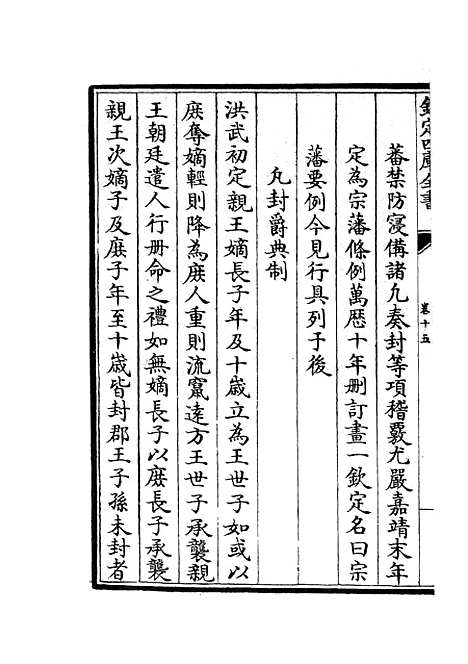 欽定四庫全書
卷十五
蕃禁防寖備諸凢奏封等項稽覈尤嚴嘉靖末年
定為宗藩條例萬歴十年刪訂畫一欽定名曰宗
藩要例今見行具列于後
凢封爵典制
洪武初定親王嫡長子年及十歲立為王世子如或以
庶奪嫡輕則降為庶人重則流竄逺方王世子承襲親
王朝廷遣人行册命之禮如無嫡長子以庶長子承襲
親王次嫡子及庶子年至十歲皆封郡王子孫未封者